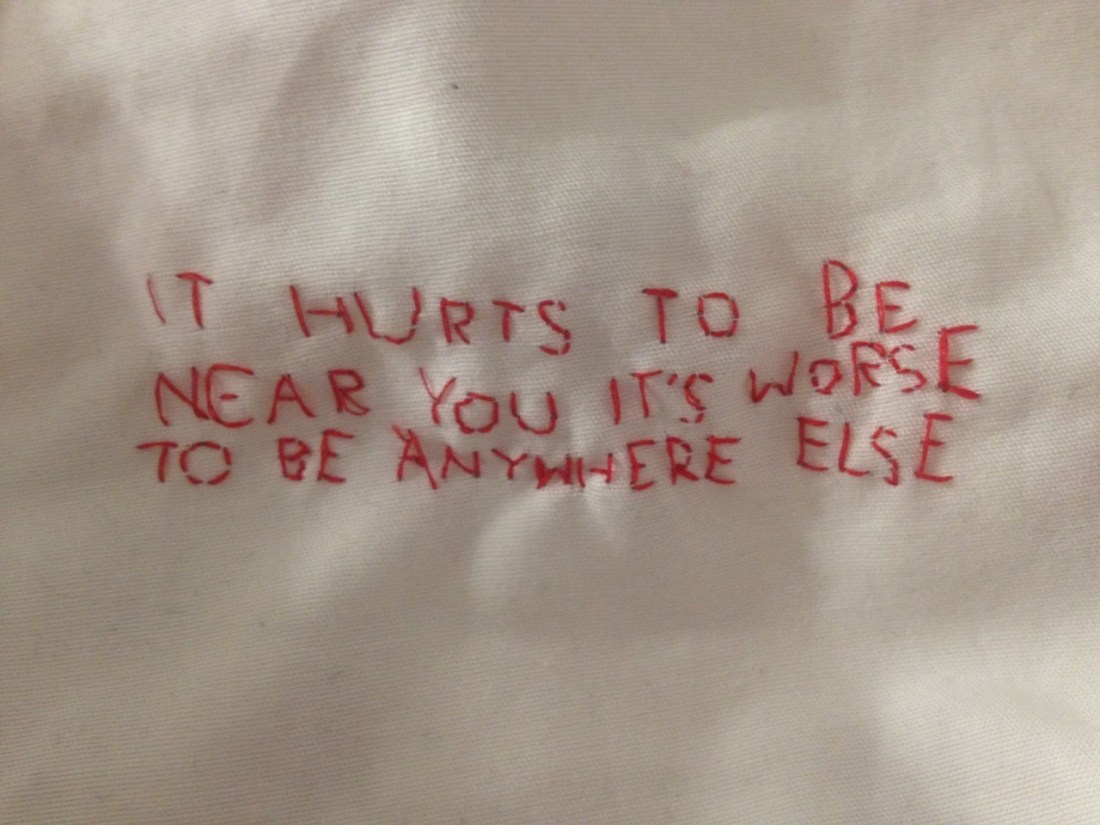 IT HURTS TO BE
NEAR YOU IT'S WORSE
TO BE ANYWHERE ELSE